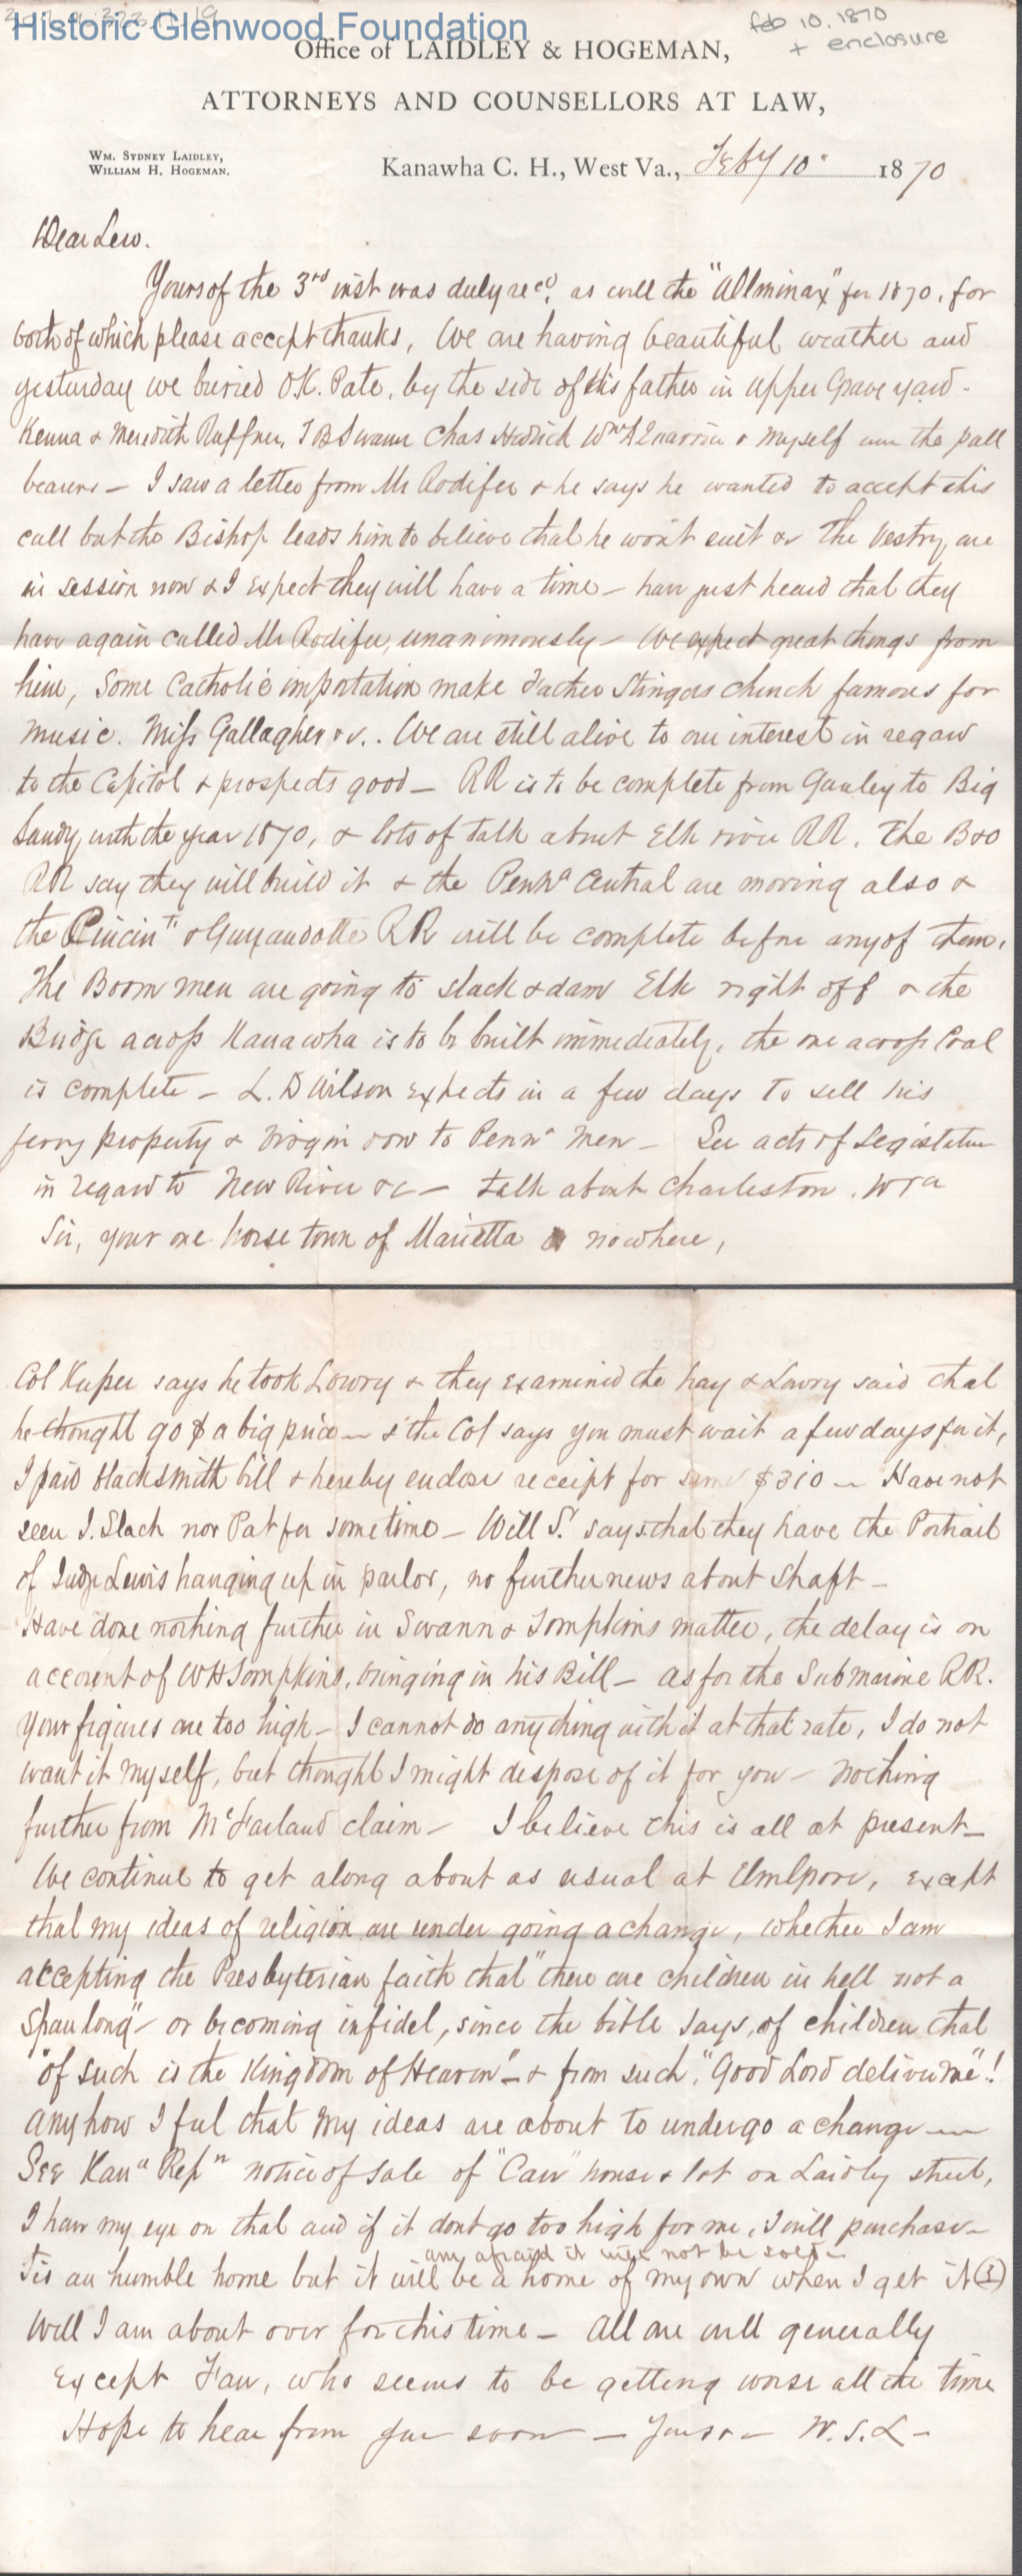 Historic Glenwood Foundation
feb 10, 1870
+ enclosure
Office of LAIDLEY & HOGEMAN,
ATTORNEYS AND COUNSELLORS AT LAW,
WM. SYDNEY LAIDLEY,
WILLIAM H. HOGEMAN.
Kanawha C. H., West Va., Feby 10" 1870
Dear Lew.
Yours of the 3rd inst was duly recd. as well the "Allminax" for 1870, for
both of which please accept thanks, We are having beautiful weather and
yesterday we buried O.K. Pate, by the side of his father in upper Grave yard -
Kenna & Meredith Ruffner, T B Swann Chas Hedrick Wm A Quarrier & myself were the pall
bearers — I saw a letter from Mr Rodifer & he says he wanted to accept this
call but the Bishop leads him to believe that he won't suit &c The Vestry are
in session now & I expect they will have a time — have just heard that they
have again called Mr Rodifer, unanimously — We expect great things from
him, Some Catholic importation make Father Stingers church famous for
music. Miss Gallagher &c.. We are still alive to our interest in regard
to the Capitol & prospects good — RR is to be complete from Gauley to Big
Sandy, with the year 1870, & lots of talk about Elk river RR. The B&O
RR say they will build it & the Penna Central are moving also &
the Cincinti & Guyandotte RR will be complete before any of them.
The Boom men are going to slack & dam Elk right off & the
Bridge across Kanawha is to be built immediately, the one across Coal
is complete — L. D Wilson expects in a few days to sell his
ferry property & Virgin row to Penna men — See acts of Legislature
in regard to New River &c — talk about Charleston. W Va
Sir, your one horse town of Marietta nowhere,
Col Kuper says he took Lowry & they examined the hay & Lowry said that
he thought 90¢ a big price — & the Col says you must wait a few days for it,
I paid blacksmith bill & hereby enclose receipt for same $310 — Have not
seen J. Slack nor Pat for sometime — Will S. says that they have the Portrait
of Judge Lewis hanging up in parlor, no further news about shaft —
Have done nothing further in Swann & Tompkins matter, the delay is on
account of W H Tompkins, bringing in his Bill — as for the Submarine RR.
your figures are too high — I cannot do anything with it at that rate, I do not
want it myself, but thought I might dispose of it for you — nothing
further from McFarland claim — I believe this is all at present —
We continue to get along about as usual at, except
that my ideas of religion are under going a change, whether I am
accepting the Presbyterian faith that "there are children in hell not a
span long" — or becoming infidel, since the bible says, of children that
"of such is the Kingdom of Heaven" — & from such, "Good Lord deliver me"!
anyhow I feel that my ideas are about to undergo a change —
See Kana Repn notice of sale of "Carr" house & lot on Laidley street,
I have my eye on that and if it dont go too high for me, I will purchase —
am afraid it will not be sold —
Tis an humble home but it will be a home of my own when I get it (?)
Well I am about over for this time — All are well generally
Except Fan, who seems to be getting worse all the time
Hope to hear from you soon — Yours &c — W. S. L —